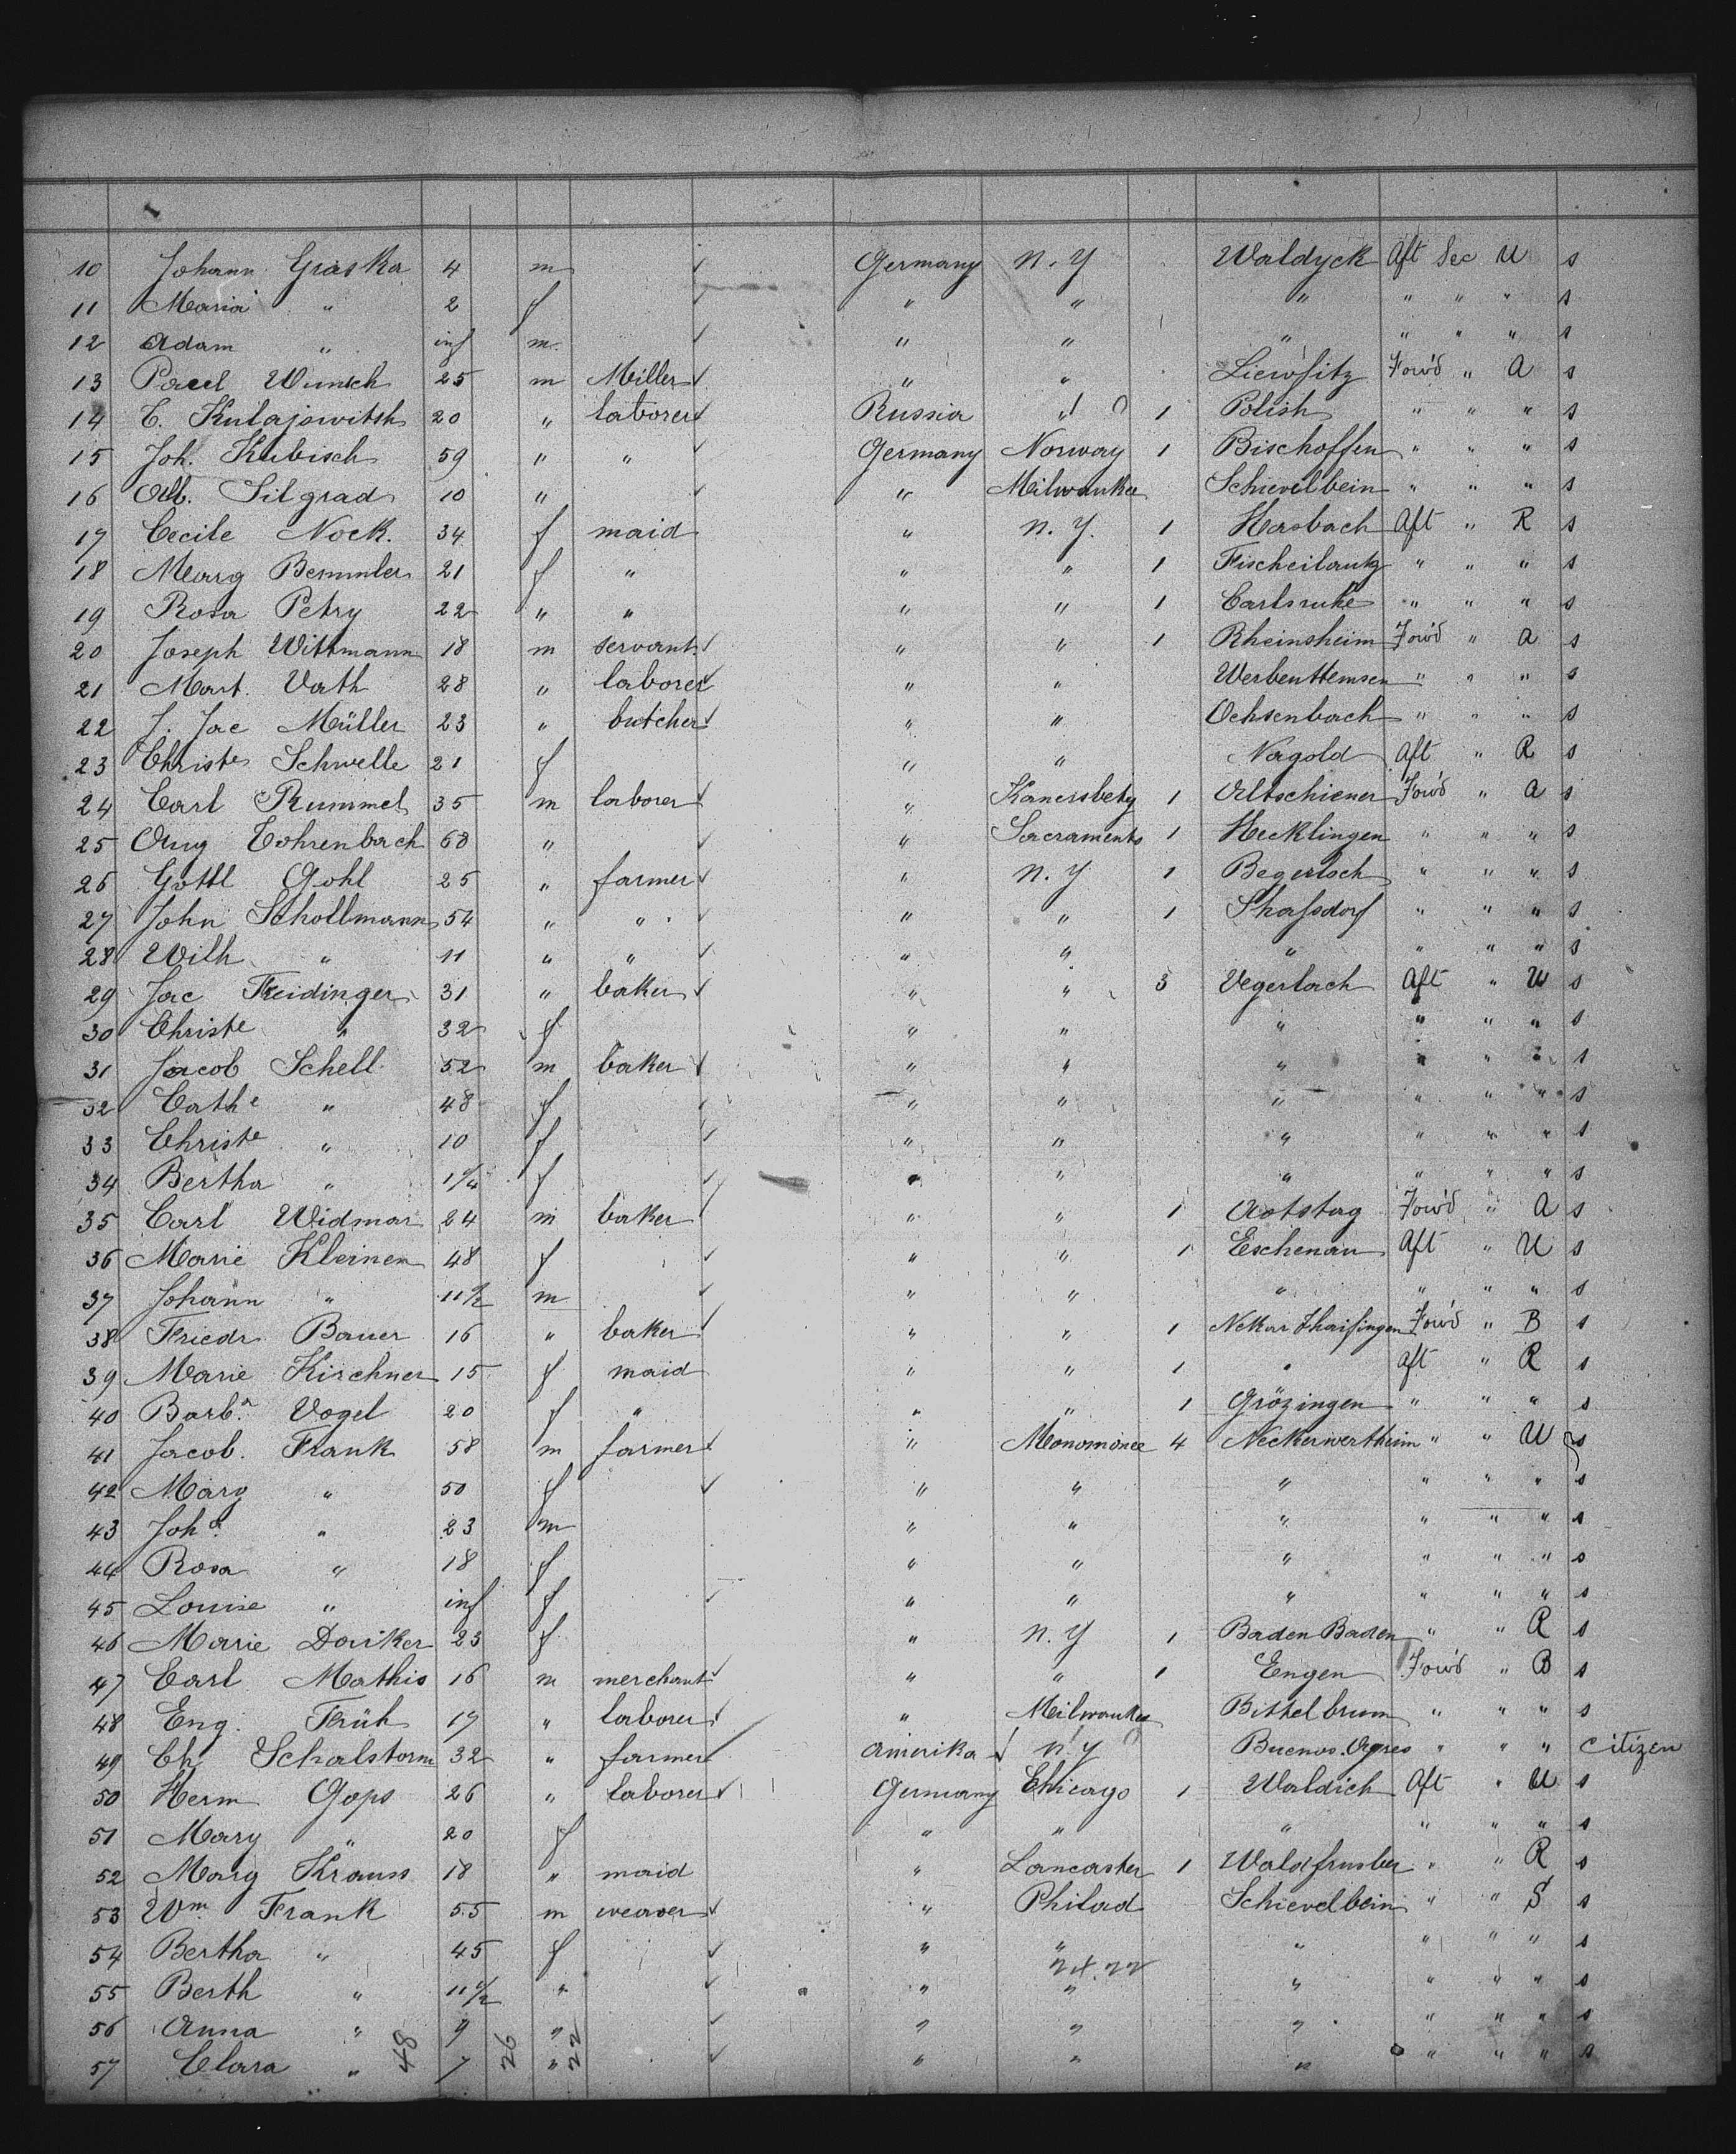 10 Johann Graska 4 m Germany N.Y Waldyck Aft Sec U s
11 Maria " 2 f " " " " " " s
12 Adam " inf m " " " " " " s
13 Paul Wunsch 25 m Miller " " Fow'd " A s
14 C. Kulajowitsh 20 " laborer Russia " 1 Polish " " " s
15 Joh. Kubisch 59 " " Germany Norway 1 Bischoffen " " " s
16 Alb. Silgrad 10 " " Milwaukee Schievelbein " " " s
17 Cecile Nock. 34 f maid " N.Y. 1 Hasbach Aft " R s
18 Marg Bemmler 21 f " " " 1 " " " s
19 Rosa Petry 22 " " " " 1 Carlsruhe " " " s
20 Joseph Wittmann 18 m servant " " 1 Rheinsheim Fow'd " A s
21 Mart. Vath 28 " laborer " " " " " s
22 J. Jac Müller 23 " butcher " " Ochsenbach " " " s
23 Christe Schwelle 21 f " " Nagold Aft " R s
24 Carl Rummel 35 m laborer " 1 Altschiener Fow'd " A s
25 Aug Tohrenbach 68 " " Sacramento 1 Hecklingen " " " s
26 Gottl Gohl 25 " farmer " N.Y 1 Begerloch " " " s
27 John Schollmann 54 " " " " 1 Shafsdorf " " " s
28 Wilh " 11 " " " " " " " " s
29 Jac Freidinger 31 " baker " " 3 Vegerlach Aft " U s
30 Christe " 32 f " " " " " " s
31 Jacob Schell 52 m baker " " " " " " s
32 Cathe " 48 f " " " " " " s
33 Christe " 10 f " " " " " " s
34 Bertha " f " " " " " " s
35 Carl Widmar 24 m baker " " 1 Aotstag Fow'd " A s
36 Marie Kleinen 48 f " " 1 Eschenau Aft " U s
37 Johann " 11½ m " " " " " " s
38 Friedr Bauer 16 " baker " " 1 Nekar Thaisingen Fow'd " B s
39 Marie Kirchner 15 f maid " " 1 " Aft " R s
40 Barba. Vogel 20 f " " " 1 Grözingen " " " s
41 Jacob. Frank 58 m farmer " Monominee 4 Neckerwertheim " " U s
42 Marg " 50 f " " " " " " s
43 Joha. " 23 m " " " " " " s
44 Rosa " 18 f " " " " " " s
45 Louise " inf f " " " " " " s
46 Marie Danker 23 f " N.Y 1 Baden Baden " " R s
47 Carl Mathis 16 m merchant " " 1 Engen Fow'd " B s
48 Eng. Früh 17 " laborer " Milwaukee Bittelbrunn " " " s
49 Ch Schalstorm 32 " farmer Amerika N.Y Buenos Ayres " " " Citizen
50 Herm Gops 26 " laborer Germany Chicago 1 Waldich Aft " U s
51 Mary " 20 f " " " " " " s
52 Marg Krauss 18 " maid " Lancaster 1 " " R s
53 Wm Frank 55 m weaver " Philad Schievelbein " " S s
54 Bertha " 45 f " " " " " " s
24.22
55 Berth " 11½ " " " " " " " s
56 Anna " 9 " " " " " " " s
57 Clara " 7 " " " " " " " s
48 26 22